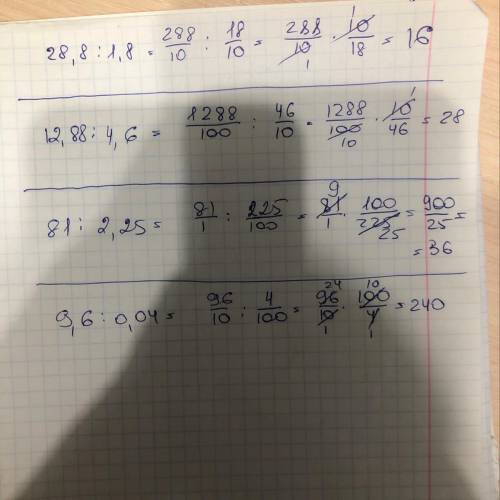 28,8 : 1,8 = 288/10 : 18/10 = 288/10 1 · 10 1/18 = 16
12,88 : 4,6 = 1288/100 : 46/10 = 1288/100 10 · 10 1/46 = 28
81 : 2,25 = 81/1 : 225/100 = 81 9/1 · 100/225 25 = 900/25 =
= 36
9,6 : 0,04 = 96/10 : 4/100 = 96 24/10 1 · 100 10/4 1 = 240